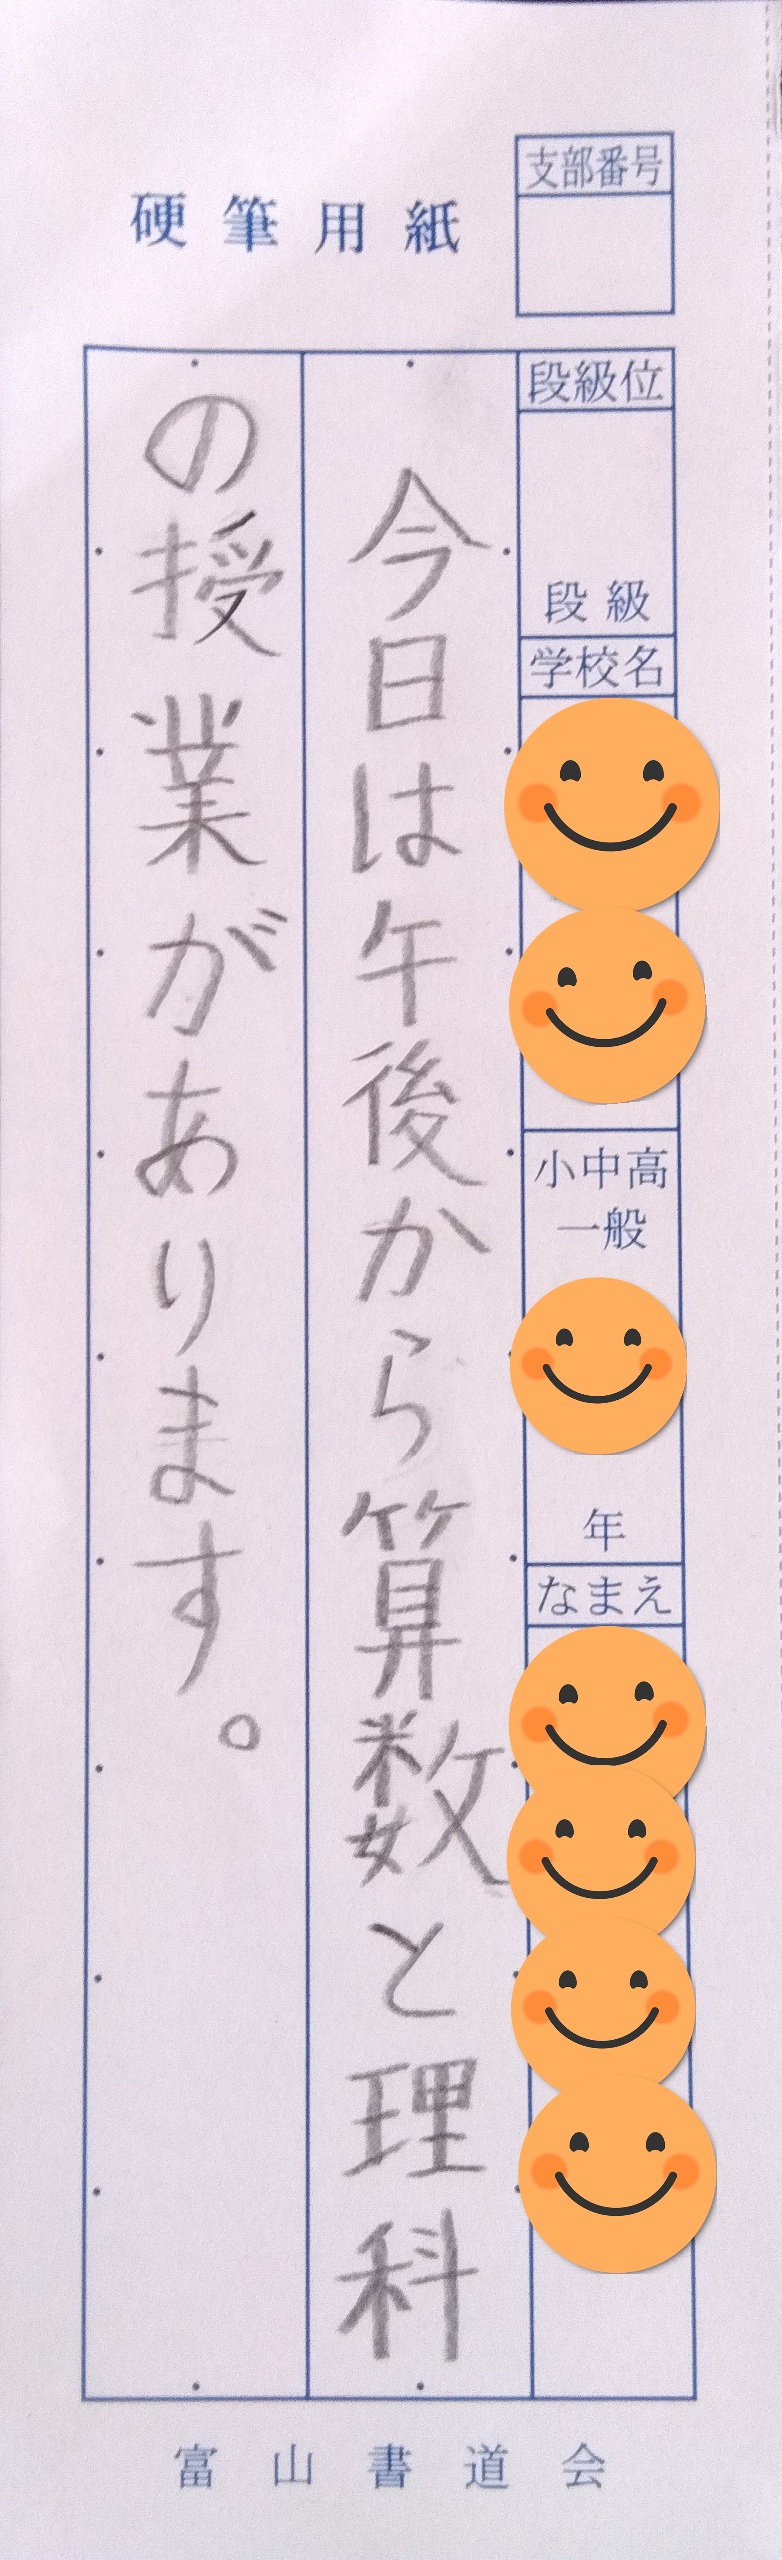 硬筆用紙
支部番号
段級位
段級
学校名
小中高
一般
年
なまえ
今日は午後から算数と理科
の授業があります。
富山書道会